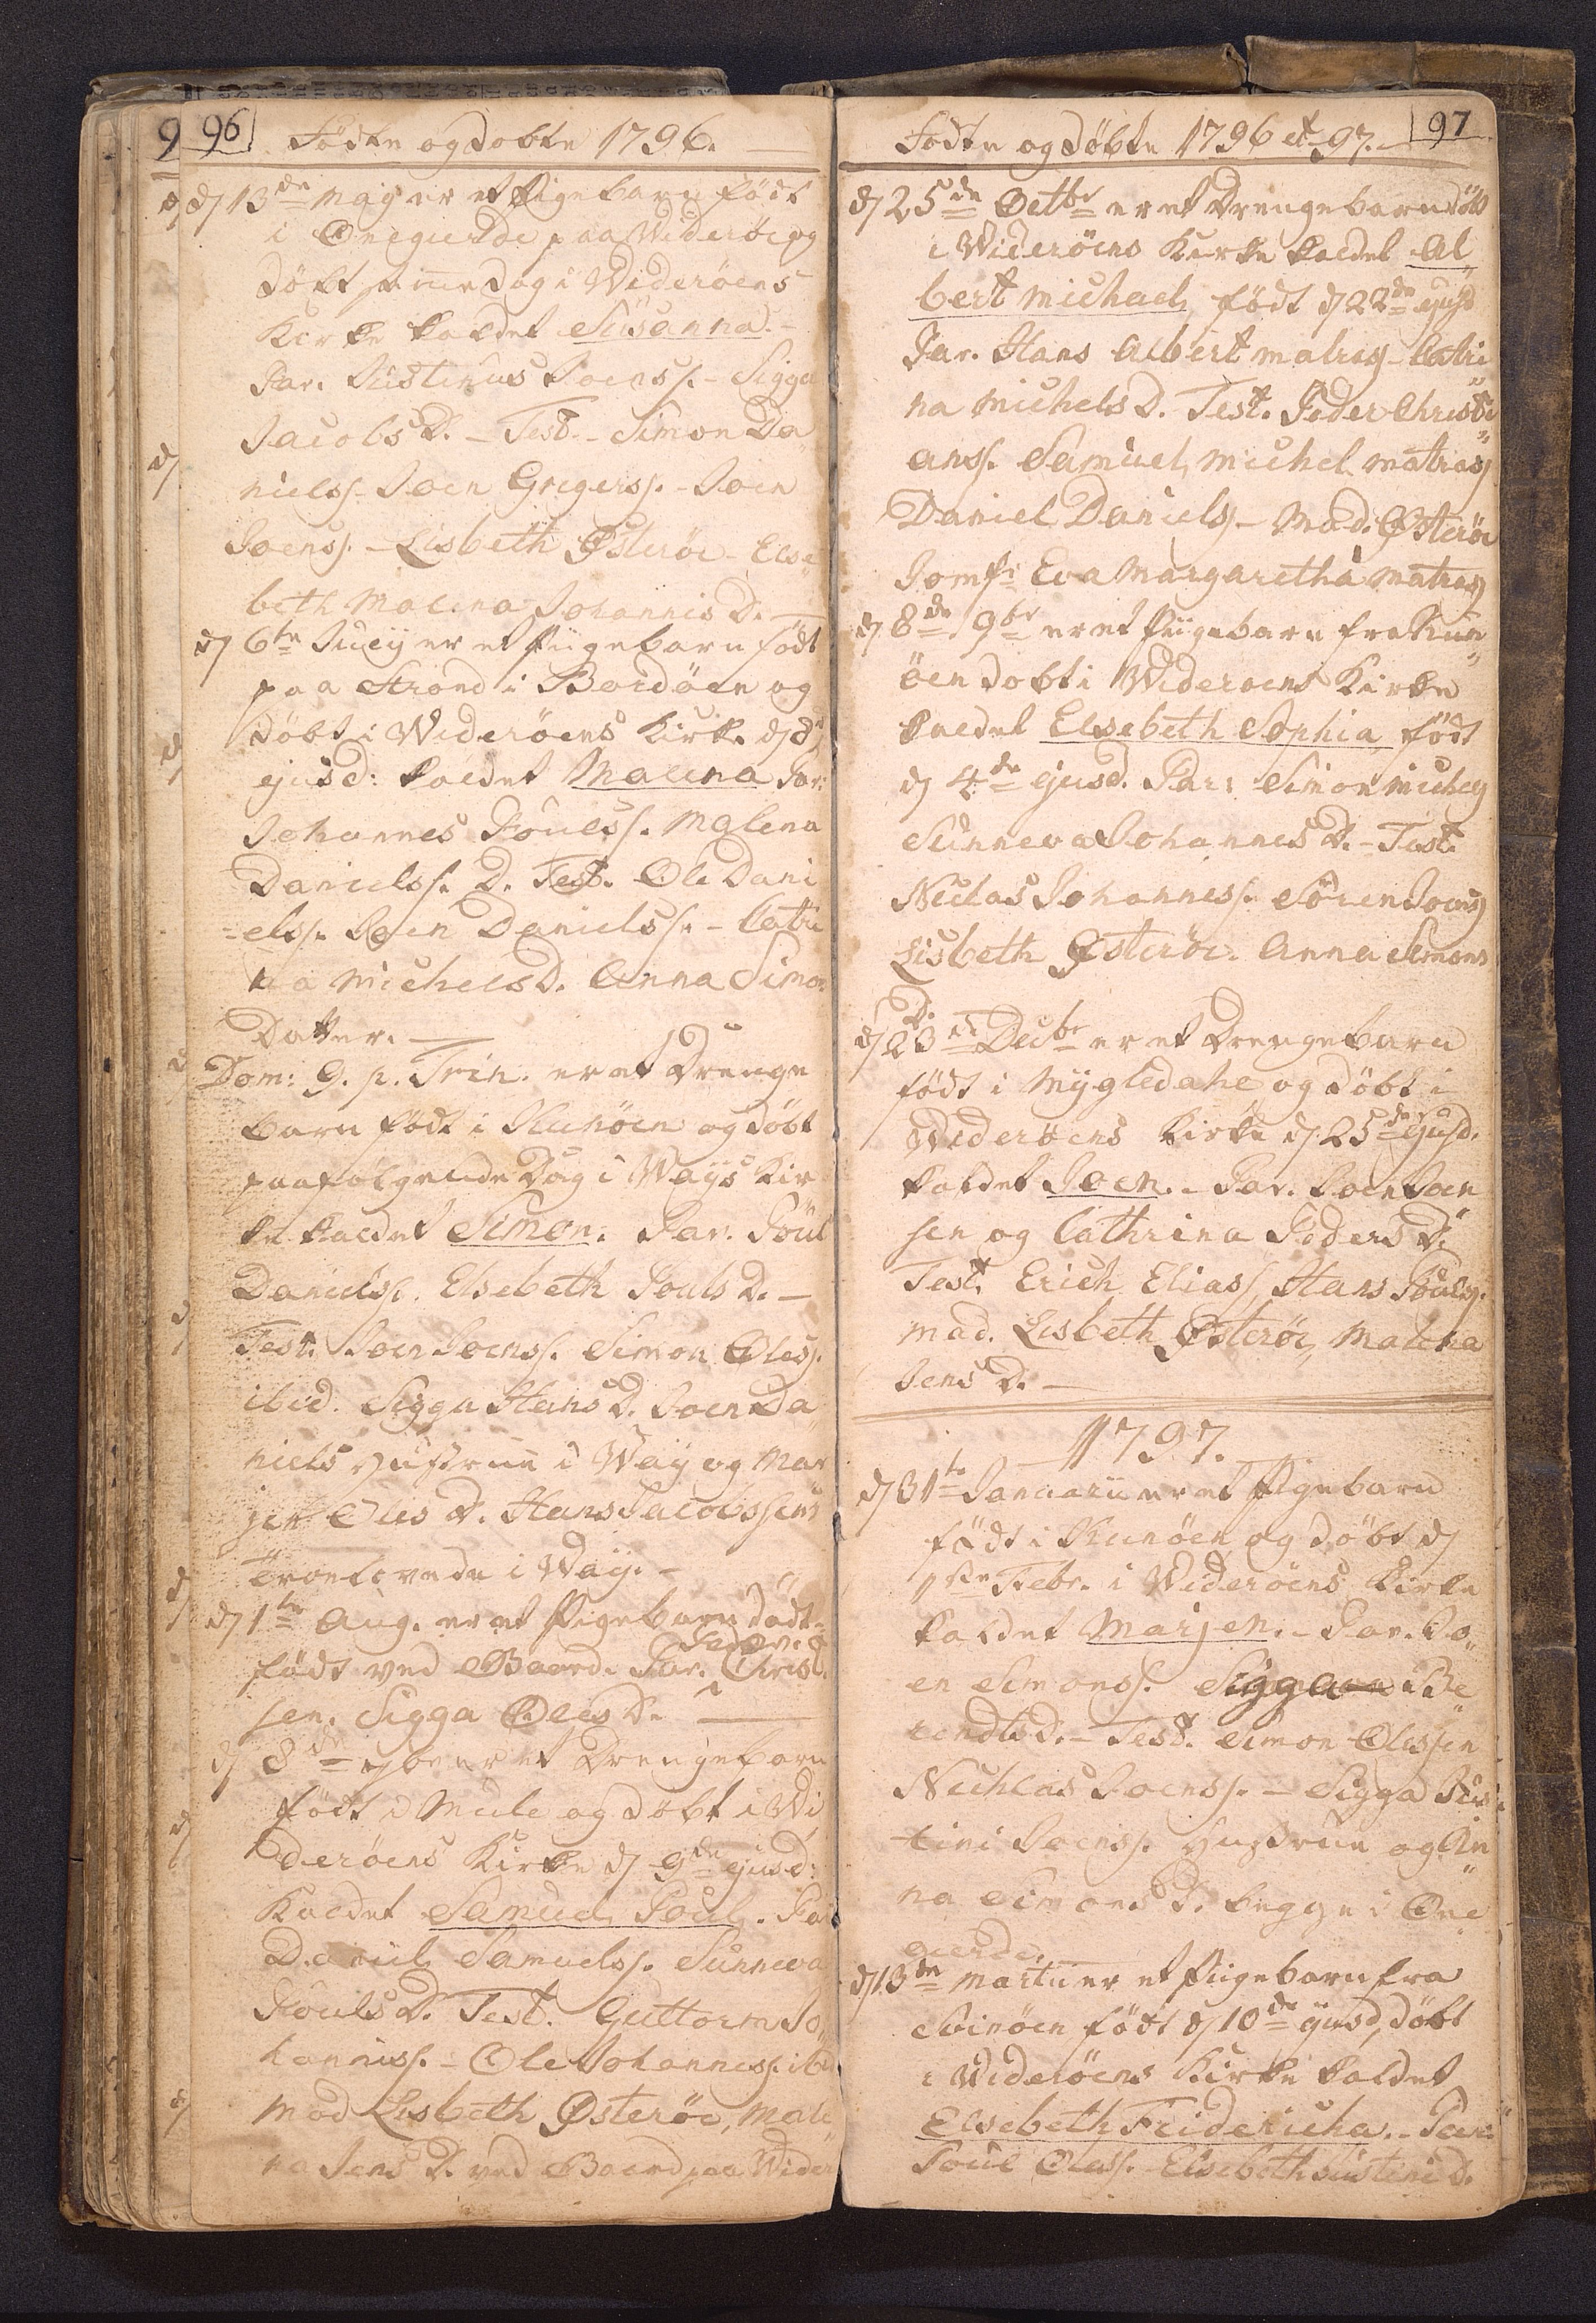 96
Fødte og døbte 1796.
d 13de Maij er et Pigebarn født
i Onegierde paa Widerøe og
døbt samme Dag i Widerøens
Kirke kaldet Süsanna. -
Par. Justinus Joenss. - Sigga
Jacobs D. - Test. - Simon Da„
nielss. - Joen Gregerss. - Joen
Joenss. - Lisbeth Østerøe - Else„
beth Malena Johannis D. -
d 6te Julij er et Piigebarn født
paa Strond i Bordøen og
døbt i Widerøens Kirke d 8
ejusd: kaldet Malena Par:
Johannes Poulss. Malena
Danielss. D. Test. Ole Dani
elss. Joen Danielss. - Catri
na Michels D. Anna Simon
Datter. -
Dom: 9. p. Trin. er et Drenge
barn født i Kunøen og døbt
paafølgende Dag i Waÿs Kir
ke kaldet Simon. Par. Poul
Danielss. Elsebeth Pouls D. -
Test. Joen Joenss. Simon Oless.
ibid. Sigga Hans D. Joen Da„
niels Hustrue i Waÿ og Mar
jen Oles D. Hans Jacobssens
Troelovede i Waÿ. -
d 1te Aug. er et Pigebarn død=
født ved Baard. Par. Peder Christ.
sen. Sigga Oles D. -
d 8de 7br er et Drengebarn
født i Mule og døbt i Wi„
derøens Kirke d 9de ejusd:
Kaldet Samuel Poul. Par
Daniel Samuelss. Sunneva
Pouls D. Test. Guttorm Jo„
hanniss. - Ole Johanness. ibd
Mad Lisbeth Østerøe, Male„
na Jens D. ved Baard paa Wider
97
Fødte og døbte 1796 et 97.
d 25de Octbr er et Drengebarn døbt
i Widerøens Kirke kaldet Al„
bert Michael, født d 22de ejusd
Par. Hans Albert Matras - Catri„
na Michels D. Test. Peder Christi„
anss. Samuel Michel Matras
Daniel Daniels - Mad. Østerøe
Jomfr Eva Margaretha Matras
d 8de 9br er et Piigebarn fra Kun„
øen døbt i Widerøens Kirke
kaldet Elsebeth Sophia født
d 4de ejusd. Par: Simon Michels
Sunneva Johannes D. - Test.
Niclas Johanness. Søren Joens
Lisbeth Østerøe. Anna Simons
D.
d 23de Decbr er et Drengebarn
født i Mygledahe og døbt i
Widerøens Kirke d 25de ejusd.
kaldet Joen. - Par. Joen Joen
sen og Cathrina Peders D.
Test. Erich Eliass. Hans Pouls.
mad. Lisbeth Østerøe, Malena
Jens D. -
1797.
d 31te Januarii er et Pigebarn
født i Kunøen og døbt d
1ste Febr. i Widerøens Kirke
kaldet Marjen. - Par. Jo„
en Simonss. Sigga Be„
rendts D. - Test. Simon Olessen
Nichlas Joenss. - Sigga Jus„
tini Joenss. Hustrue og An„
na Simons D. begge i One
gierde.
d 13de Martii er et Piigebarn fra
Svinøen født d 10de ejusd, døbt
i Widerøens Kirke kaldet
Elsebeth Fridericha. - Par:
Poul Oless. - Elsebeth Justini D.